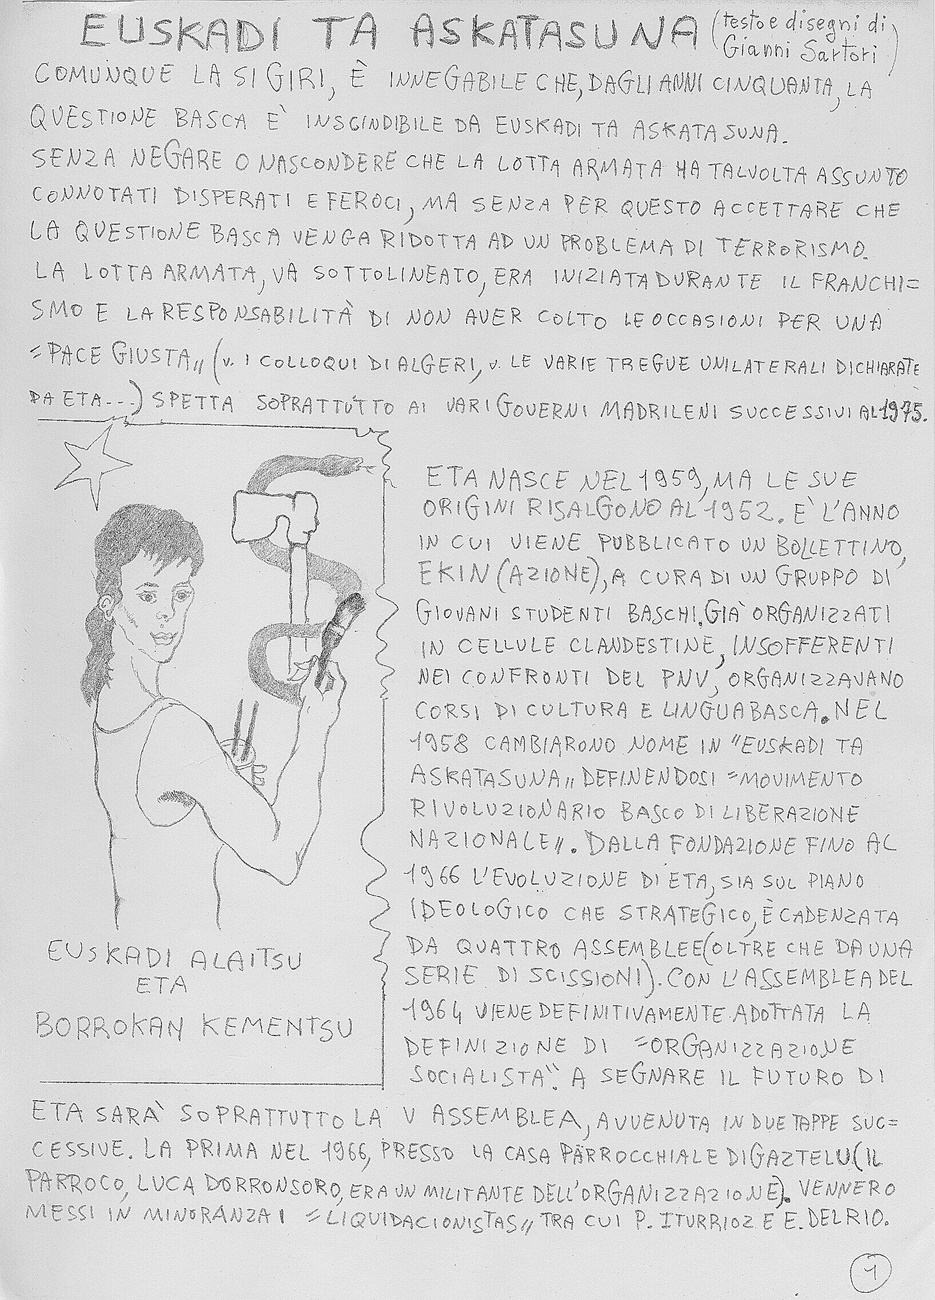 EUSKADI TA ASKATASUNA (testo e disegni di
Gianni Sartori)
COMUNQUE LA SI GIRI, È INNEGABILE CHE, DAGLI ANNI CINQUANTA, LA
QUESTIONE BASCA E' INSCINDIBILE DA EUSKADI TA ASKATASUNA.
SENZA NEGARE O NASCONDERE CHE LA LOTTA ARMATA HA TALVOLTA ASSUNTO
CONNOTATI DISPERATI E FEROCI, MA SENZA PER QUESTO ACCETTARE CHE
LA QUESTIONE BASCA VENGA RIDOTTA AD UN PROBLEMA DI TERRORISMO.
LA LOTTA ARMATA, VA SOTTOLINEATO, ERA INIZIATA DURANTE IL FRANCHI=
SMO E LA RESPONSABILITÀ DI NON AVER COLTO LE OCCASIONI PER UNA
"PACE GIUSTA" (v. I COLLOQUI DI ALGERI, v. LE VARIE TREGUE UNILATERALI DICHIARATE
DA ETA---) SPETTA SOPRATTUTTO AI VARI GOVERNI MADRILENI SUCCESSIVI AL 1975.
ETA NASCE NEL 1959, MA LE SUE
ORIGINI RISALGONO AL 1952. E' L'ANNO
IN CUI VIENE PUBBLICATO UN BOLLETTINO,
EKIN (AZIONE), A CURA DI UN GRUPPO DI
GIOVANI STUDENTI BASCHI. GIA' ORGANIZZATI
IN CELLULE CLANDESTINE, INSOFFERENTI
NEI CONFRONTI DEL PNV, ORGANIZZAVANO
CORSI DI CULTURA E LINGUA BASCA. NEL
1958 CAMBIARONO NOME IN "EUSKADI TA
ASKATASUNA" DEFINENDOSI "MOVIMENTO
RIVOLUZIONARIO BASCO DI LIBERAZIONE
NAZIONALE". DALLA FONDAZIONE FINO AL
1966 L'EVOLUZIONE DI ETA, SIA SUL PIANO
IDEOLOGICO CHE STRATEGICO, È CADENZATA
DA QUATTRO ASSEMBLEE (OLTRE CHE DA UNA
SERIE DI SCISSIONI). CON L'ASSEMBLEA DEL
1964 VIENE DEFINITIVAMENTE ADOTTATA LA
DEFINIZIONE DI "ORGANIZZAZIONE
SOCIALISTA". A SEGNARE IL FUTURO DI
ETA SARA' SOPRATTUTTO LA V ASSEMBLEA, AVVENUTA IN DUE TAPPE SUC=
CESSIVE. LA PRIMA NEL 1966, PRESSO LA CASA PARROCCHIALE DI GAZTELU (IL
PARROCO, LUCA DORRONSORO, ERA UN MILITANTE DELL'ORGANIZZAZIONE). VENNERO
MESSI IN MINORANZA I "LIQUIDACIONISTAS" TRA CUI P. ITURRIOZ E E. DEL RIO.
EUSKADI ALAITSU
ETA
BORROKAN KEMENTSU
1